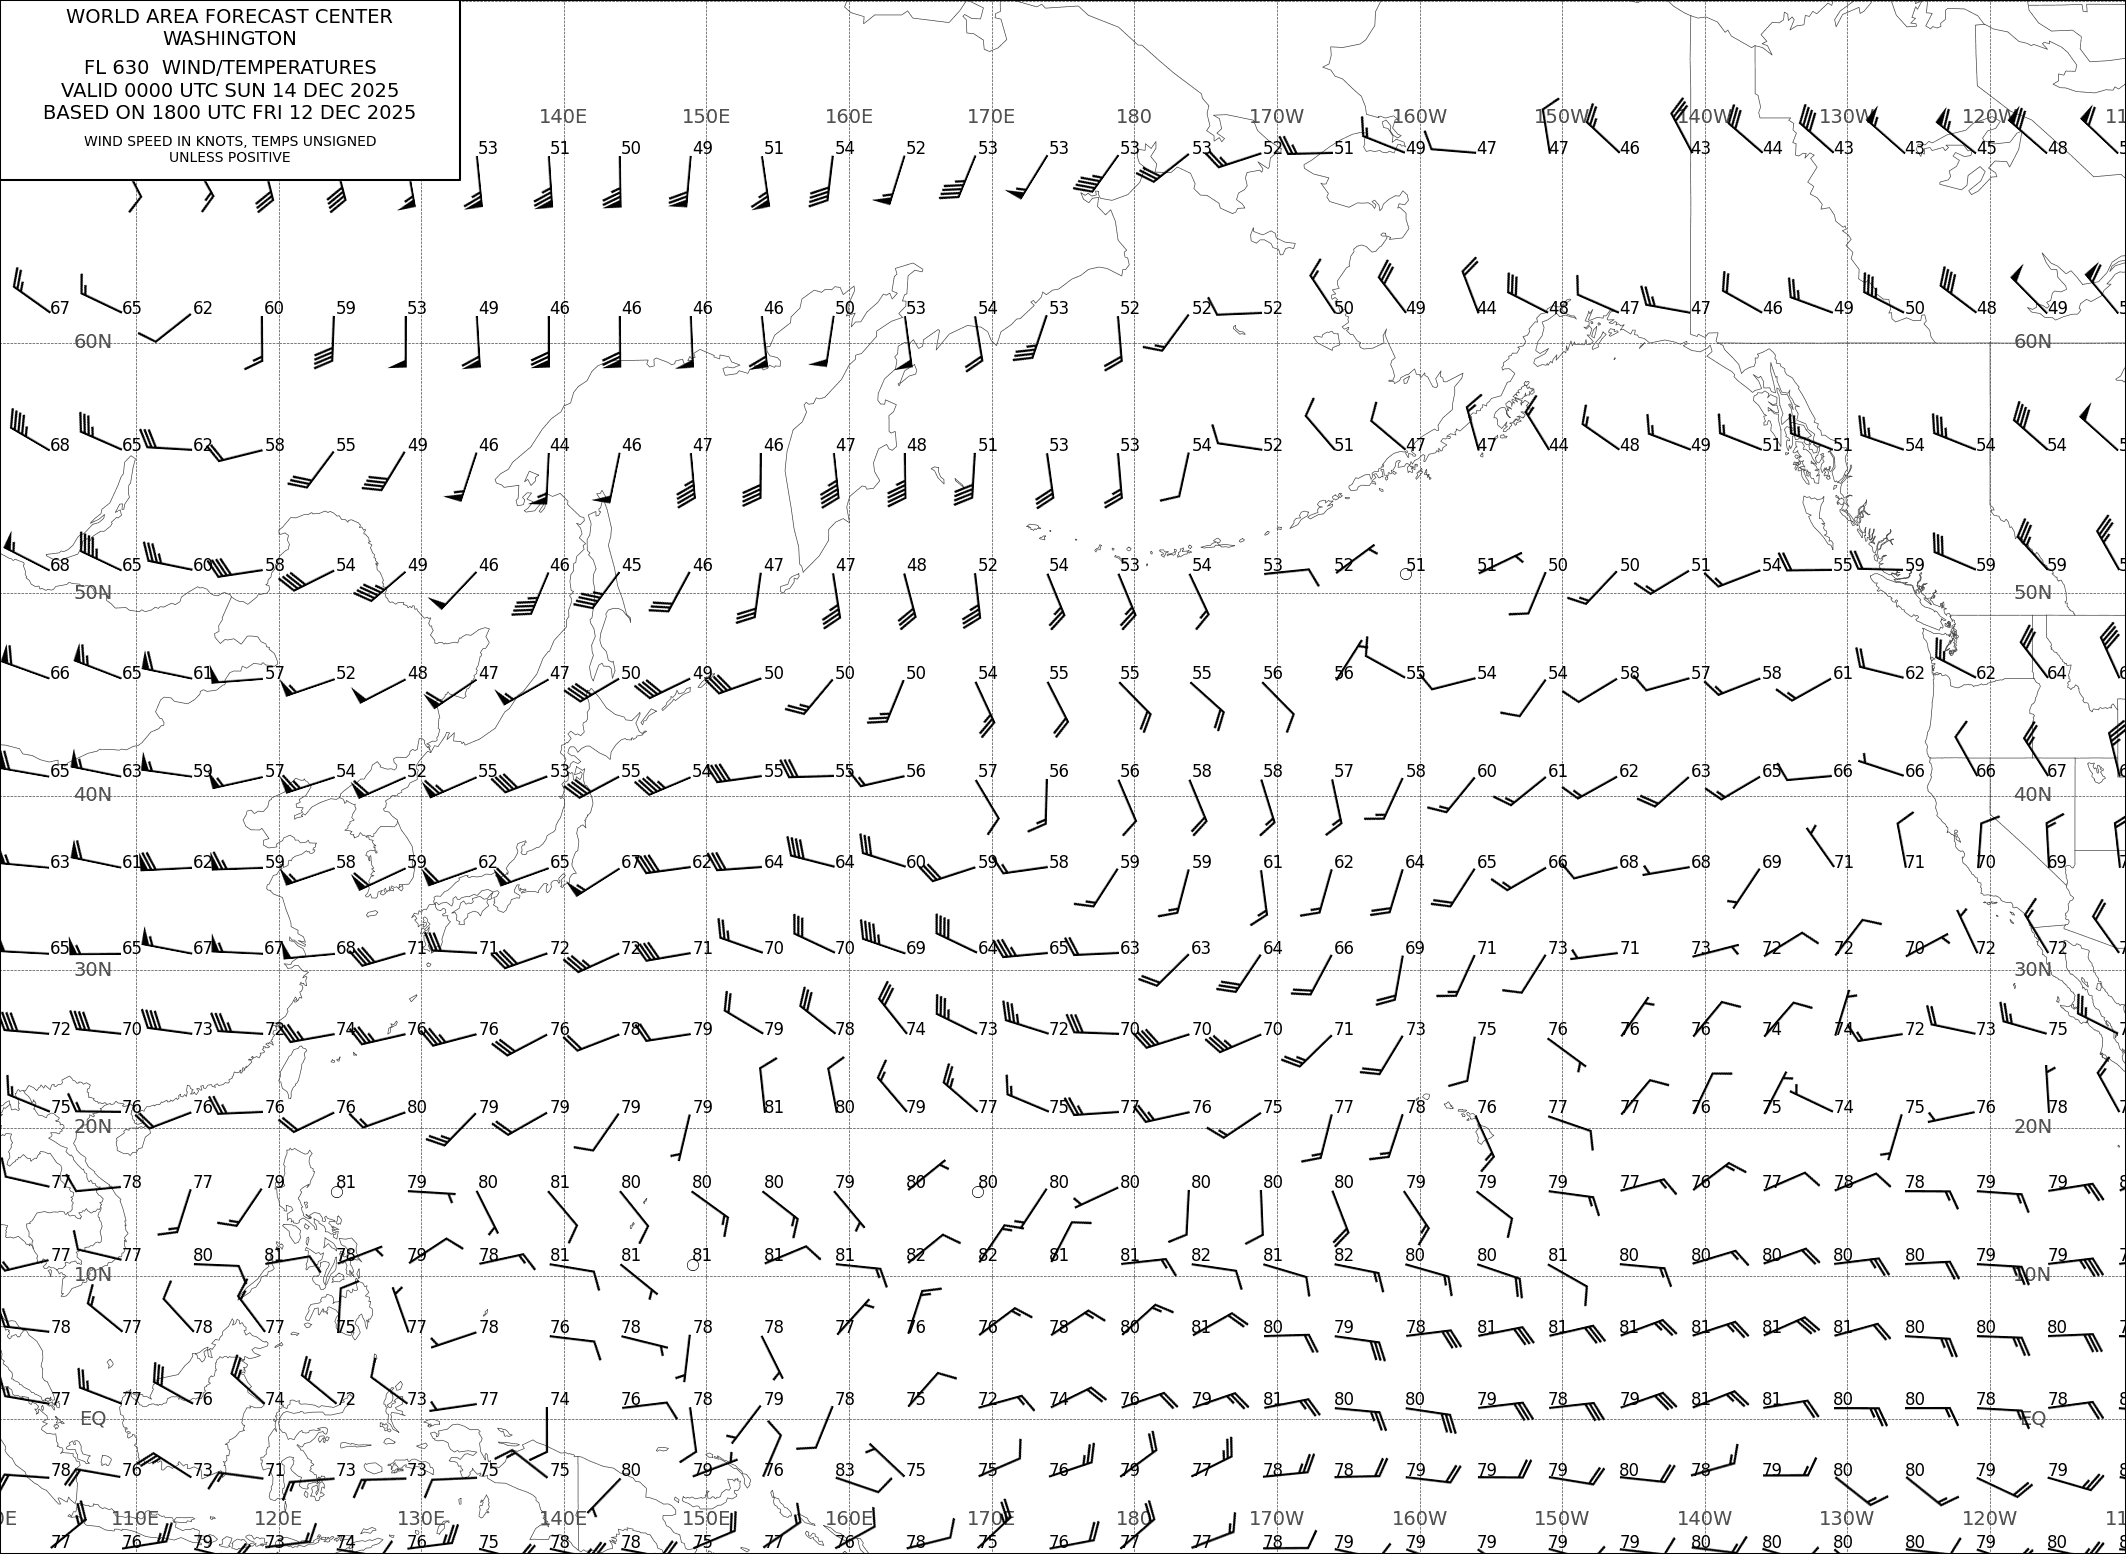 WORLD AREA FORECAST CENTER
WASHINGTON
FL 630 WIND/TEMPERATURES
VALID 0000 UTC SUN 14 DEC 2025
BASED ON 1800 UTC FRI 12 DEC 2025
WIND SPEED IN KNOTS, TEMPS UNSIGNED
UNLESS POSITIVE
140E 150E 160E 170E 180 170W 160W 150W 140W 130W 120W
53 51 50 49 51 54 52 53 53 53 53 52 51 49 47 47 46 43 44 43 43 45 48
67 65 62 60 59 53 49 46 46 46 46 50 53 54 53 52 52 52 50 49 44 48 47 47 46 49 50 48 49
60N 60N
68 65 62 58 55 49 46 44 46 47 46 47 48 51 53 53 54 52 51 47 47 44 48 49 51 51 54 54 54
68 65 60 58 54 49 46 46 45 46 47 47 48 52 54 53 54 53 52 51 51 50 50 51 54 55 59 59 59
50N 50N
66 65 61 57 52 48 47 47 50 49 50 50 50 54 55 55 55 56 56 55 54 54 58 57 58 61 62 62 64
65 63 59 57 54 52 55 53 55 54 55 55 56 57 56 56 58 58 57 58 60 61 62 63 65 66 66 66 67
40N 40N
63 61 62 59 58 59 62 65 67 62 64 64 60 59 58 59 59 61 62 64 65 66 68 68 69 71 71 70 69
65 65 67 67 68 71 71 72 72 71 70 70 69 64 65 63 63 64 66 69 71 73 71 73 72 72 70 72 72
30N 30N
72 70 73 72 74 76 76 76 78 79 79 78 74 73 72 70 70 70 71 73 75 76 76 76 74 74 72 73 75
75 76 76 76 76 80 79 79 79 79 81 80 79 77 75 77 76 75 77 78 76 77 77 76 75 74 75 76 78
20N 20N
77 78 77 79 81 79 80 81 80 80 80 79 80 80 80 80 80 80 80 79 79 79 77 76 77 78 78 79 79
77 77 80 81 78 79 78 81 81 81 81 81 82 82 81 81 82 81 82 80 80 81 80 80 80 80 80 79 79
10N 10N
78 77 78 77 75 77 78 76 78 78 78 77 76 76 78 80 81 80 79 78 81 81 81 81 81 81 80 80 80
77 77 76 74 72 73 77 74 76 78 79 78 75 72 74 76 79 81 80 80 79 78 79 81 81 80 80 78 78
EQ EQ
78 76 73 71 73 73 75 75 80 79 76 83 75 75 76 79 77 78 78 79 79 79 80 78 79 80 80 79 79
110E 120E 130E 140E 150E 160E 170E 180 170W 160W 150W 140W 130W 120W
77 76 79 73 74 76 75 78 78 75 77 76 78 75 76 77 77 78 79 79 79 79 79 80 80 80 80 79 80